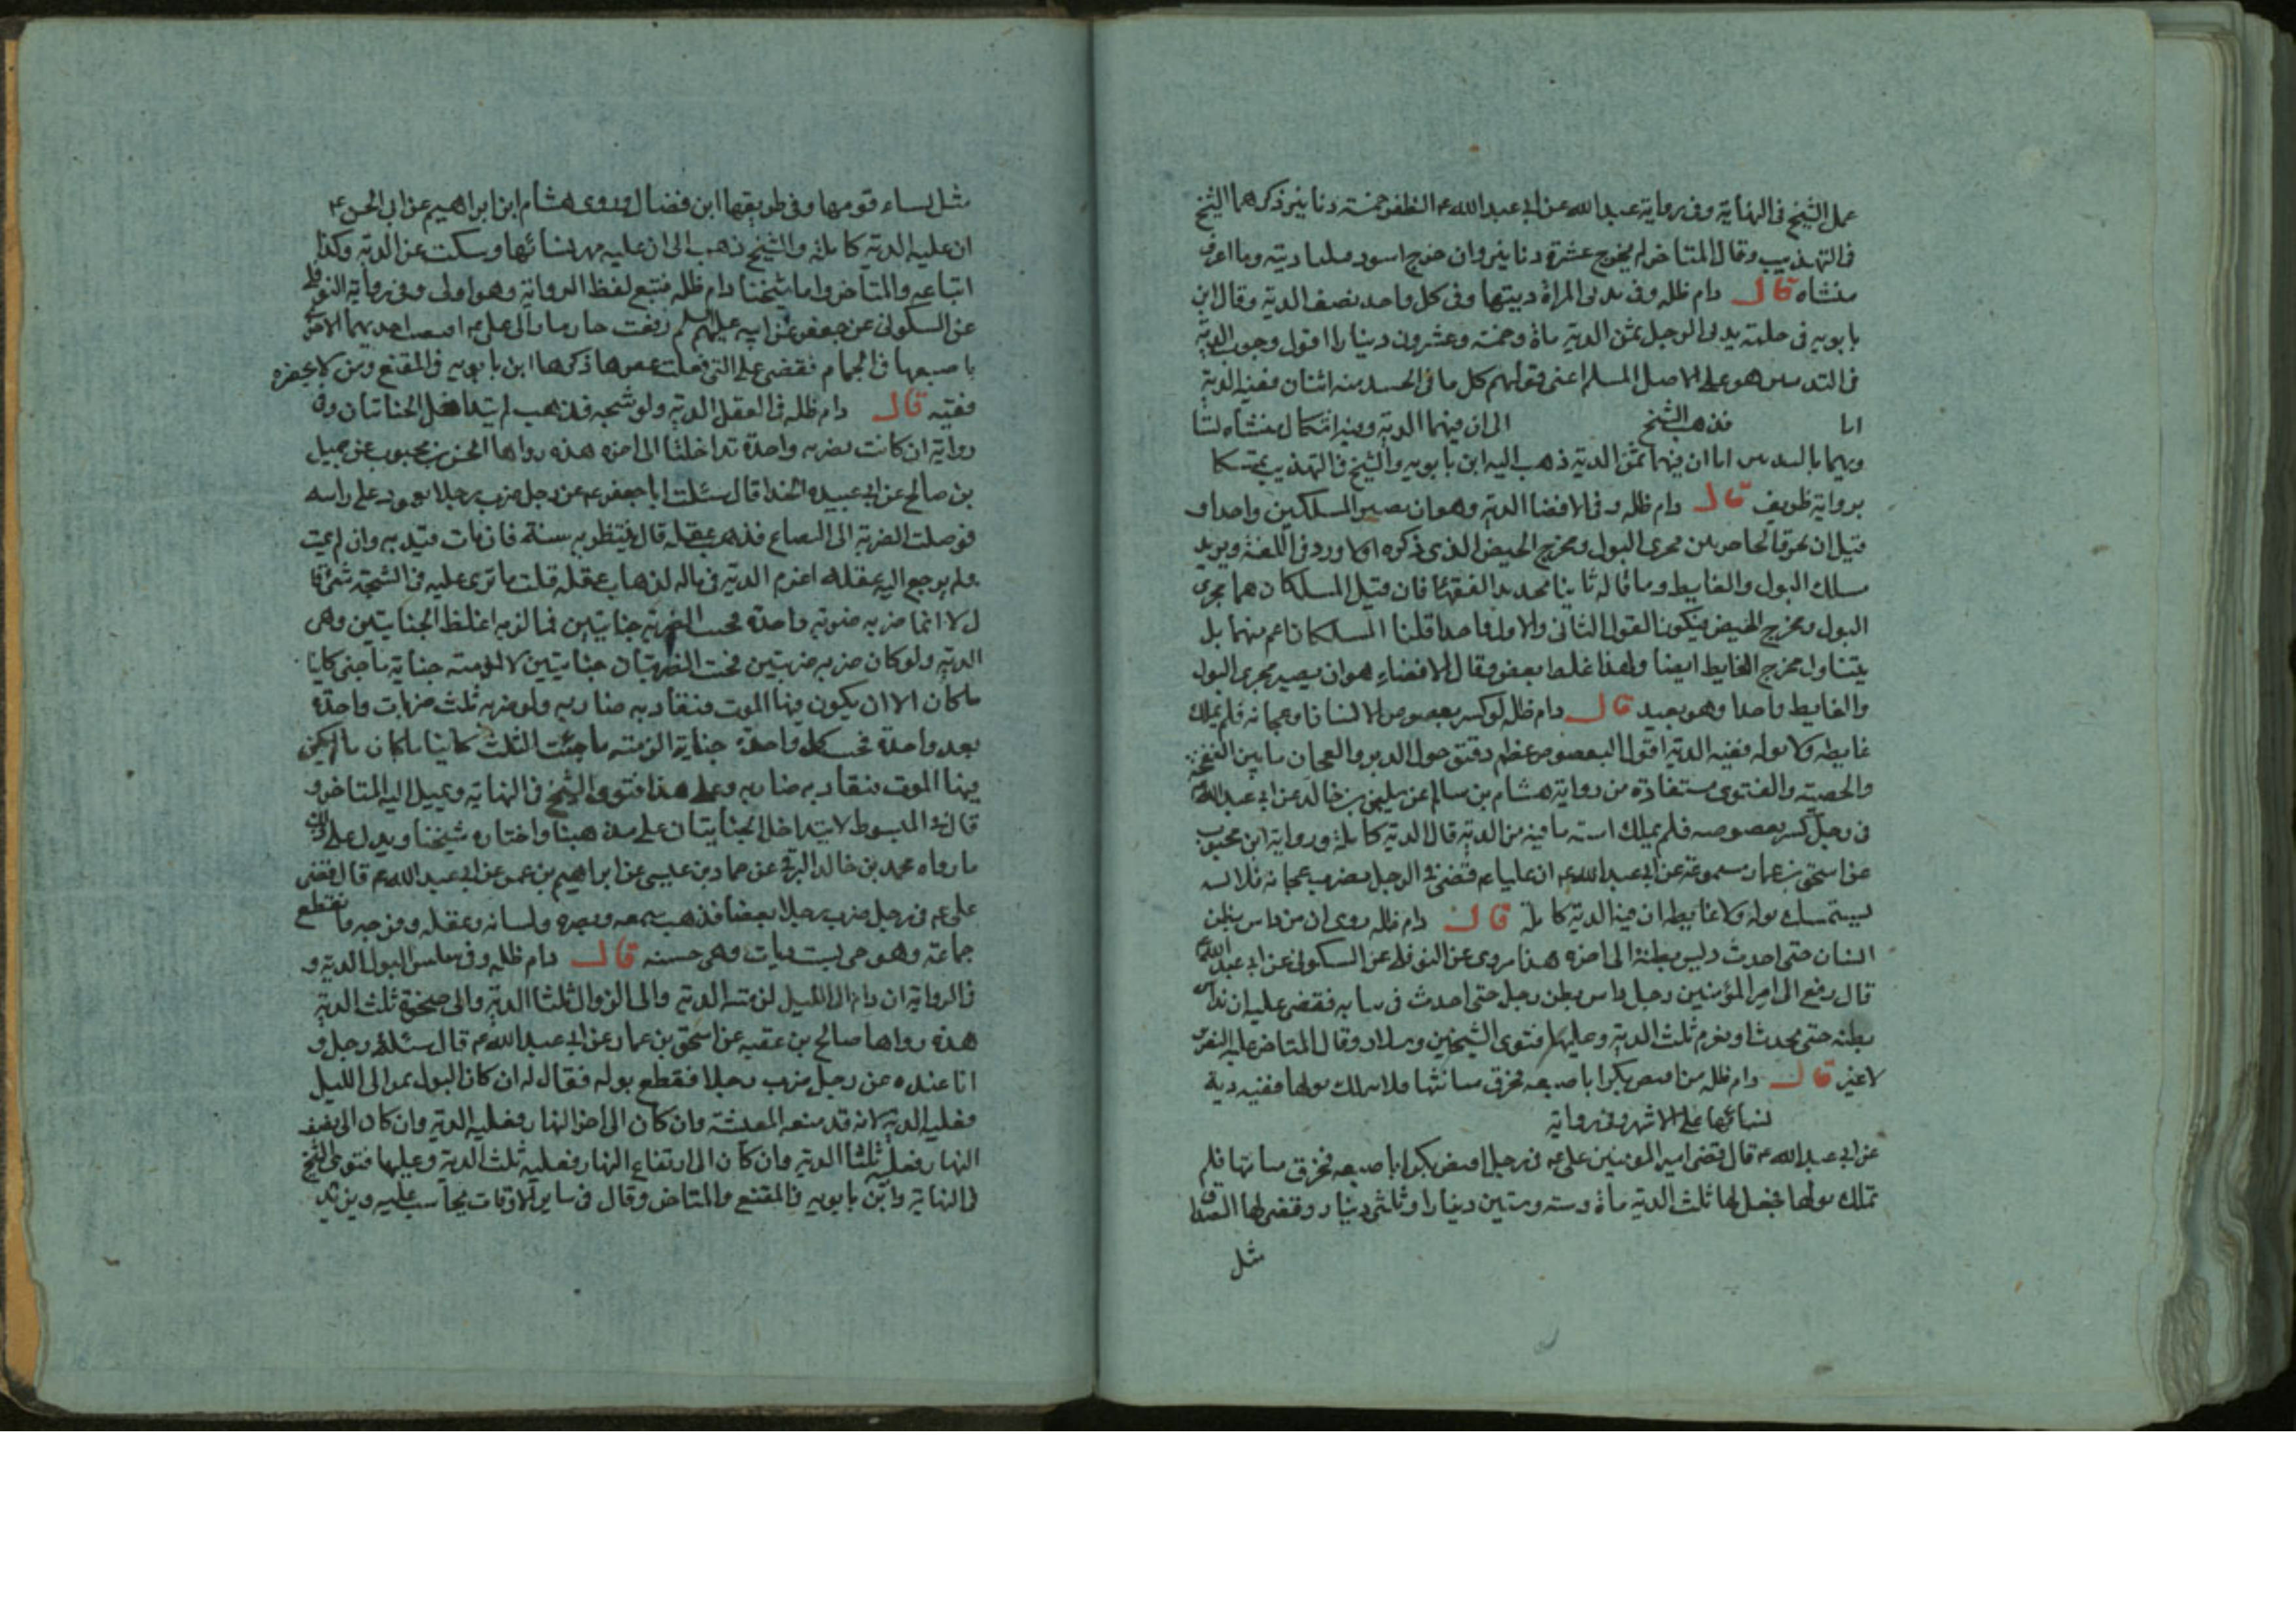 عمل الشيخ فى النهاية وفى رواية عبد الله عن ابى عبد الله ع الظفر خمسة دنانير ذكرهما الشيخ
فى التهذيب وقال المتاخر ان لم يخرج عشرة دنانير وان خرج اسود فثلثا ديته وما اعرف
منشاه قال دام ظله وفى ثديى المراة ديتها وفى كل واحد نصف الدية وقال ابن
بابويه فى حلمة ثديى الرجل ثمن الدية ماة وخمسة وعشرون دينارا اقول وجوب الدية
فى الثديين هو على الاصل المسلم اعنى قولهم كل ما فى الجسد منه اثنان ففيه الدية
اما فذهب الشيخ الى ان فيهما الدية وفيه اشكال منشاه
اما ان فيهما ثمن الدية ذهب اليه ابن بابويه والشيخ فى التهذيب تمسكا
برواية ظريف قال دام ظله وفى الافضا الدية وهو ان يصير المسلكين واحدا و
قيل ان يخرق الحاجز بين مجرى البول ومخرج الحيض الذى ذكره اولا ورد فى اللغة ويريد
مسلك البول والغايط وما قاله ثانيا تحديد الفقهاء فان قيل المسلكان هما مجرى
البول ومخرج الحيض فيكون القول الثانى والاول واحدا قلنا المسلكان اعم منهما بل
يتناول مخرج الغايط ايضا ولهذا غلط بعض وقال الافضاء هو ان يصير مجرى البول
والغايط واحدا وهو بعيد قال دام ظله لو كسر بعصوص الانسان او عجانه فلم يملك
غايطه ولا بوله ففيه الدية اقول البعصوص عظم دقيق حول الدبر والعجان ما بين الفقحة
والخصية والفتوى مستفادة من رواية هشام بن سالم عن سليمن بن خالد عن ابى عبد الله ع
فى رجل كسر بعصوصه فلم يملك استه ما فيه من الدية قال الدية كاملة ورواية ابن محبوب
عن اسحق بن عمار سمعته عن ابى عبد الله ع ان عليا ع قضى فى الرجل يضرب عجانه فلا
يستمسك بوله ولا غايطه ان فيه الدية كاملة قال دام ظله روى ان من داس بطن
انسان حتى احدث ديس بطنه الى اخره هذا مروى عن النوفلى عن السكونى عن ابى عبد الله ع
قال رفع الى امير المؤمنين رجل داس بطن رجل حتى احدث فى ثيابه فقضى عليه ان يداس
بطنه حتى يحدث او يغرم ثلث الدية وعليها فتوى الشيخين وسلار وقال المتاخر عليه التعزير
لا غير قال دام ظله من افتض بكرا باصبعه فخرق مثانتها فلا تملك بولها ففيه دية
نسائها على الاشهر وفى رواية
عن ابى عبد الله ع قال قضى امير المومنين على ع فى رجل افتض بكرا باصبعه فخرق مثانتها فلم
تملك بولها فجعل لها ثلث الدية ماة وستة وستين دينارا وثلثى دينار وقضى لها الصداق
مثل
مثل نساء قومها وفى طريقها ابن فضال وروى هشام ابن ابراهيم عن ابى الحسن ع
ان عليه الدية كاملة والشيخ ذهب الى ان عليه مهر نسائها وسكت عن الدية وكذا
اتباعه والمتاخر واما شيخنا دام ظله فتبع لفظ الرواية وهو اولى وفى رواية النوفلى
عن السكونى عن جعفر عن ابيه عليهم السلم رفعت جاريتان الى على ع افتضت احديهما الاخرى
باصبعها فى الحمام فقضى على التى فعلت عقرها ذكرها ابن بابويه فى المقنع ومن لا يحضره
فقيه قال دام ظله فى العقل الدية ولو شجه فذهب لم يتداخل الجنايتان وفى
رواية ان كانت بضربة واحدة تداخلتا الى اخره هذه رواها الحسن بن محبوب عن جميل
بن صالح عن ابى عبيدة الحذا قال سئلت ابا جعفر ع عن رجل ضرب رجلا بعمود على راسه
فوصلت الضربة الى الدماغ فذهب عقله قال ينتظر به سنة فان مات قيد به وان لم يمت
ولم يرجع اليه عقله اغرم الدية فى ماله لذهاب عقله قلت ما ترى عليه فى الشجة شئ قا
ل لا انما ضربه ضربة واحدة فجنت الضربة جنايتين فالزمه اغلظ الجنايتين وهى
الدية ولو كان ضربه ضربتين فجنت الضربتان جنايتين لالزمته جناية ما جنى كاينا
ما كان الا ان يكون فيها الموت فيقاد به ضاربه ولو ضربه ثلث ضربات واحدة
بعد واحدة فجنت كل واحدة جناية الزمته ما جنت الثلث كاينا ما كان ما لم يكن
فيها الموت فيقاد به ضاربه وعلى هذا فتوى الشيخ فى النهاية ويميل اليه المتاخر و
قال فى المبسوط لا يتداخل الجنايتان على مذهبنا واختاره شيخنا ويدل على ذلك
ما رواه محمد بن خالد البرقى عن حماد بن عيسى عن ابراهيم بن عمر عن ابى عبد الله ع قال قضى
على ع فى رجل ضرب رجلا بعصا فذهب سمعه وبصره ولسانه وعقله وفرجه وانقطع
جماعه وهو حى بست ديات وهى حسنة قال دام ظله وفى سلس البول الدية و
فى الرواية ان دام الى الليل لزمته الدية والى الزوال ثلثا الدية والى ضحوة ثلث الدية
هذه رواها صالح بن عقبه عن اسحق بن عمار عن ابى عبد الله ع قال سئله رجل و
انا عنده عن رجل ضرب رجلا فقطع بوله فقال له ان كان البول يمر الى الليل
فعليه الدية لانه قد منعه المعيشة وان كان الى اخر النهار فعليه الدية وان كان الى نصف
النهار فعليه ثلثا الدية وان كان الى ارتفاع النهار فعليه ثلث الدية وعليها فتوى الشيخ
فى النهاية وابن بابويه فى المقنع والمتاخر وقال فى ساير الاوقات يحاسب عليه